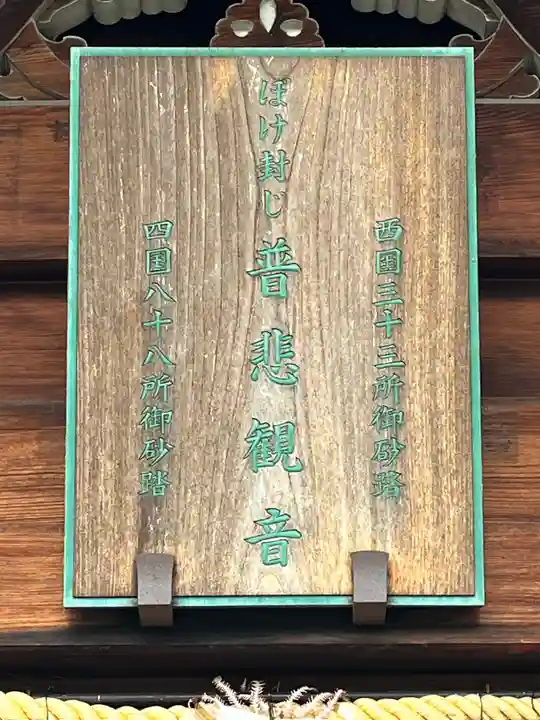 西国三十三所御砂踏
ぼけ封じ 普悲観音
四国八十八所御砂踏